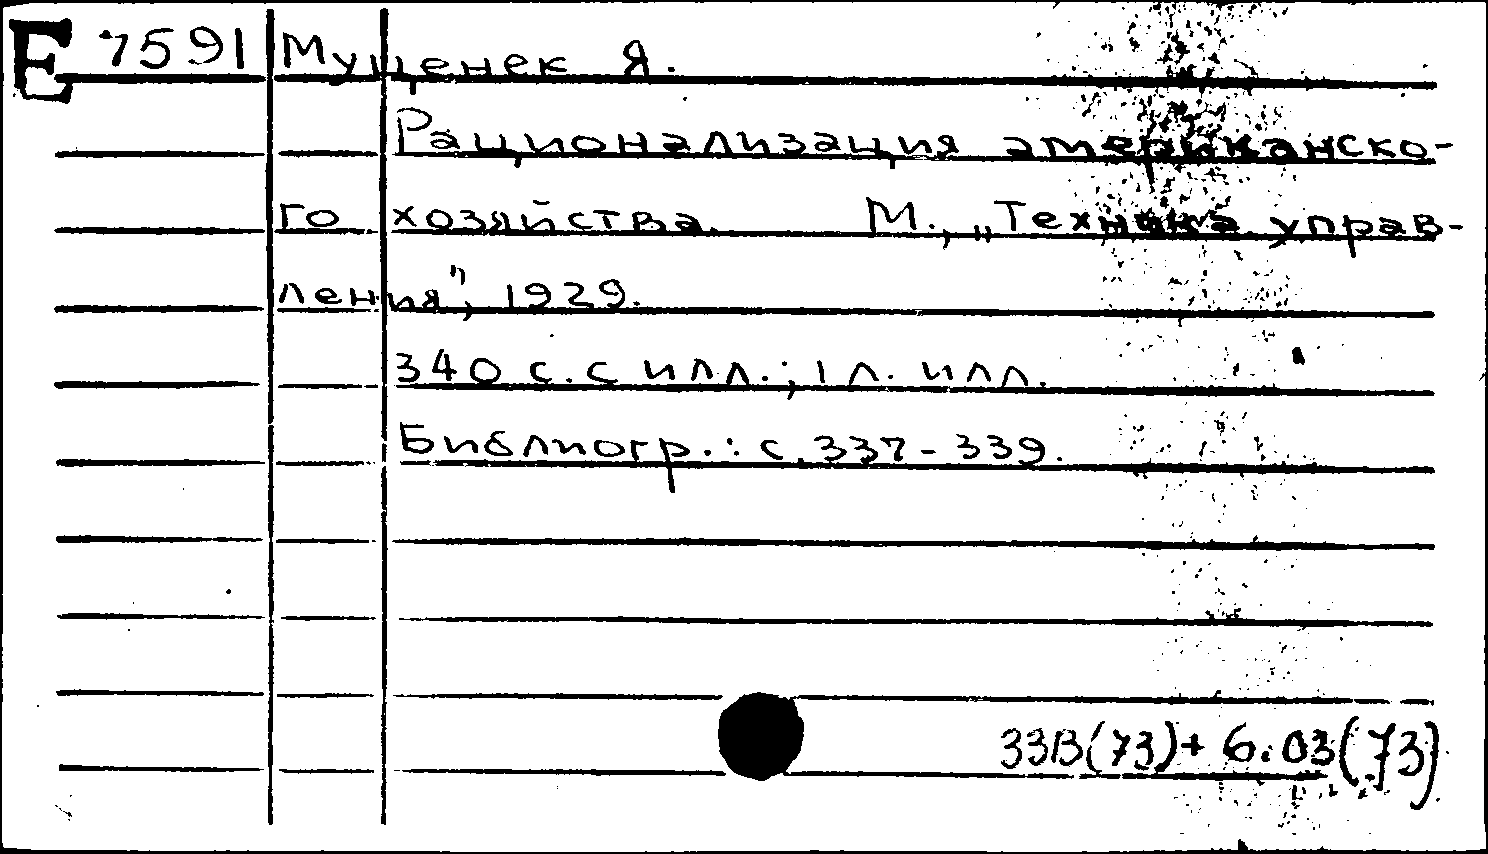 Е 7591 Мущенек Я.
Рационализация американско-
го хозяйства. М., „Техника управ-
ления", 1929.
340 с. с илл.; 1 л. илл.
Библиогр.: с. 337-339.
33В(73)+ 6.03(73)